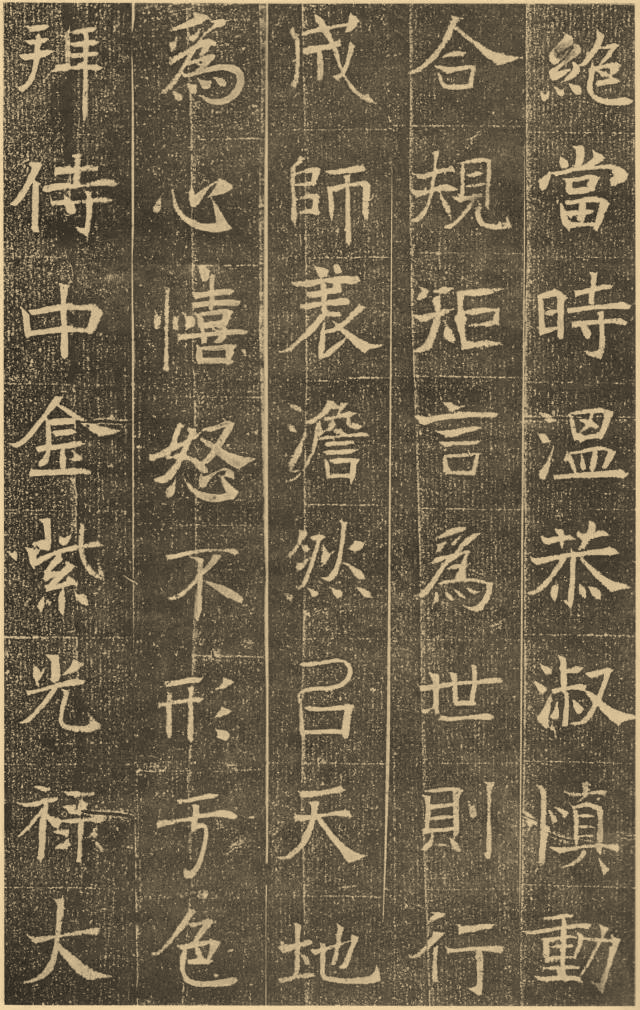 絶當時溫恭淑慎動
合規矩言爲世則行
成師表澹然㠯天地
爲心憘怒不形亐色
拜侍中金紫光禄大